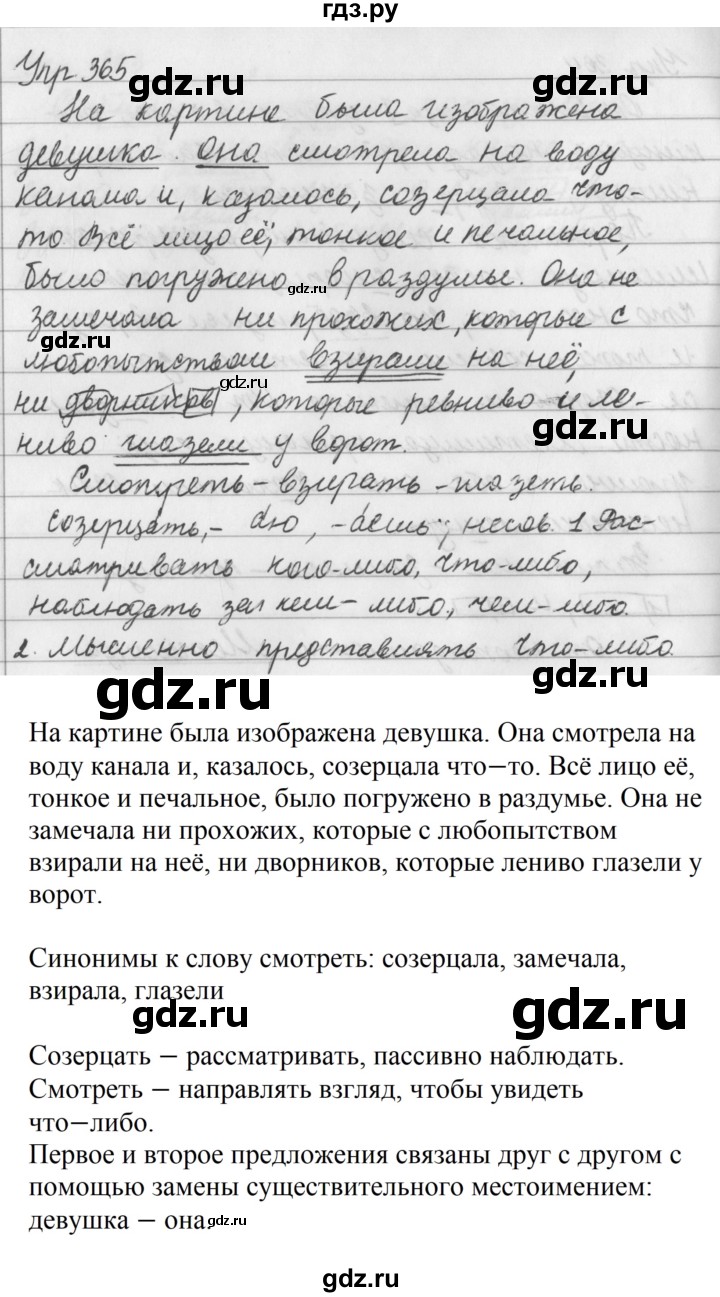 гдз.ру
Упр 365
gdz.ru gdz.ru
На картине была изображена
девушка. Она смотрела на воду
канала и, казалось, созерцала что-
то Всё лицо её, тонкое и печальное,
gdz.ru gdz.ru
было погружено в раздумье. Она не
gdz.ru
замечала ни прохожих, которые с
любопытством взирали на неё,
gdz.ru
ни дворников, которые ревниво и ле-
ниво глазели у ворот.
gdz.ru gdz.ru
Смотреть – взирать – глазеть.
созерцать, -аю, -аешь; несов. 1 Рас-
сматривать кого-либо, что-либо,
наблюдать за кем-либо, чем-либо.
2. Мысленно представлять что-либо.
gdz.ru gdz.ru
На картине была изображена девушка. Она смотрела на
воду канала и, казалось, созерцала что−то. Всё лицо её,
тонкое и печальное, было погружено в раздумье. Она не
замечала ни прохожих, которые с любопытством
взирали на неё, ни дворников, которые лениво глазели у
ворот.
Синонимы к слову смотреть: созерцала, замечала,
взирала, глазели
gdz.ru gdz.ru
Созерцать − рассматривать, пассивно наблюдать.
Смотреть − направлять взгляд, чтобы увидеть
что−либо.
Первое и второе предложения связаны друг с другом с
помощью замены существительного местоимением:
девушка − она.
gdz.ru
gdz.ru